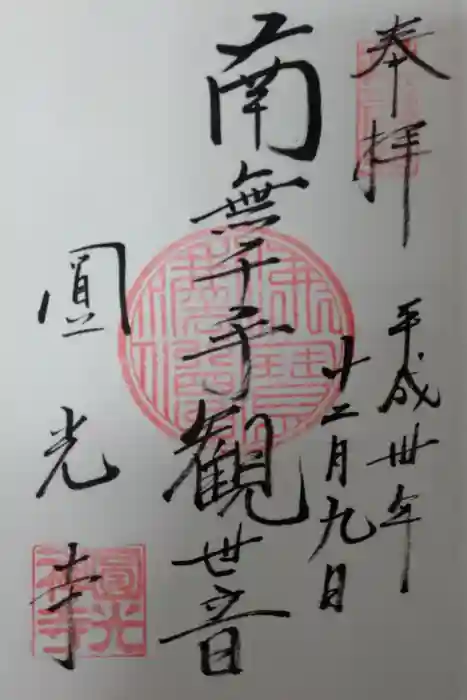 奉拝
平成卅年
十二月九日
南無千手観世音
圓光寺